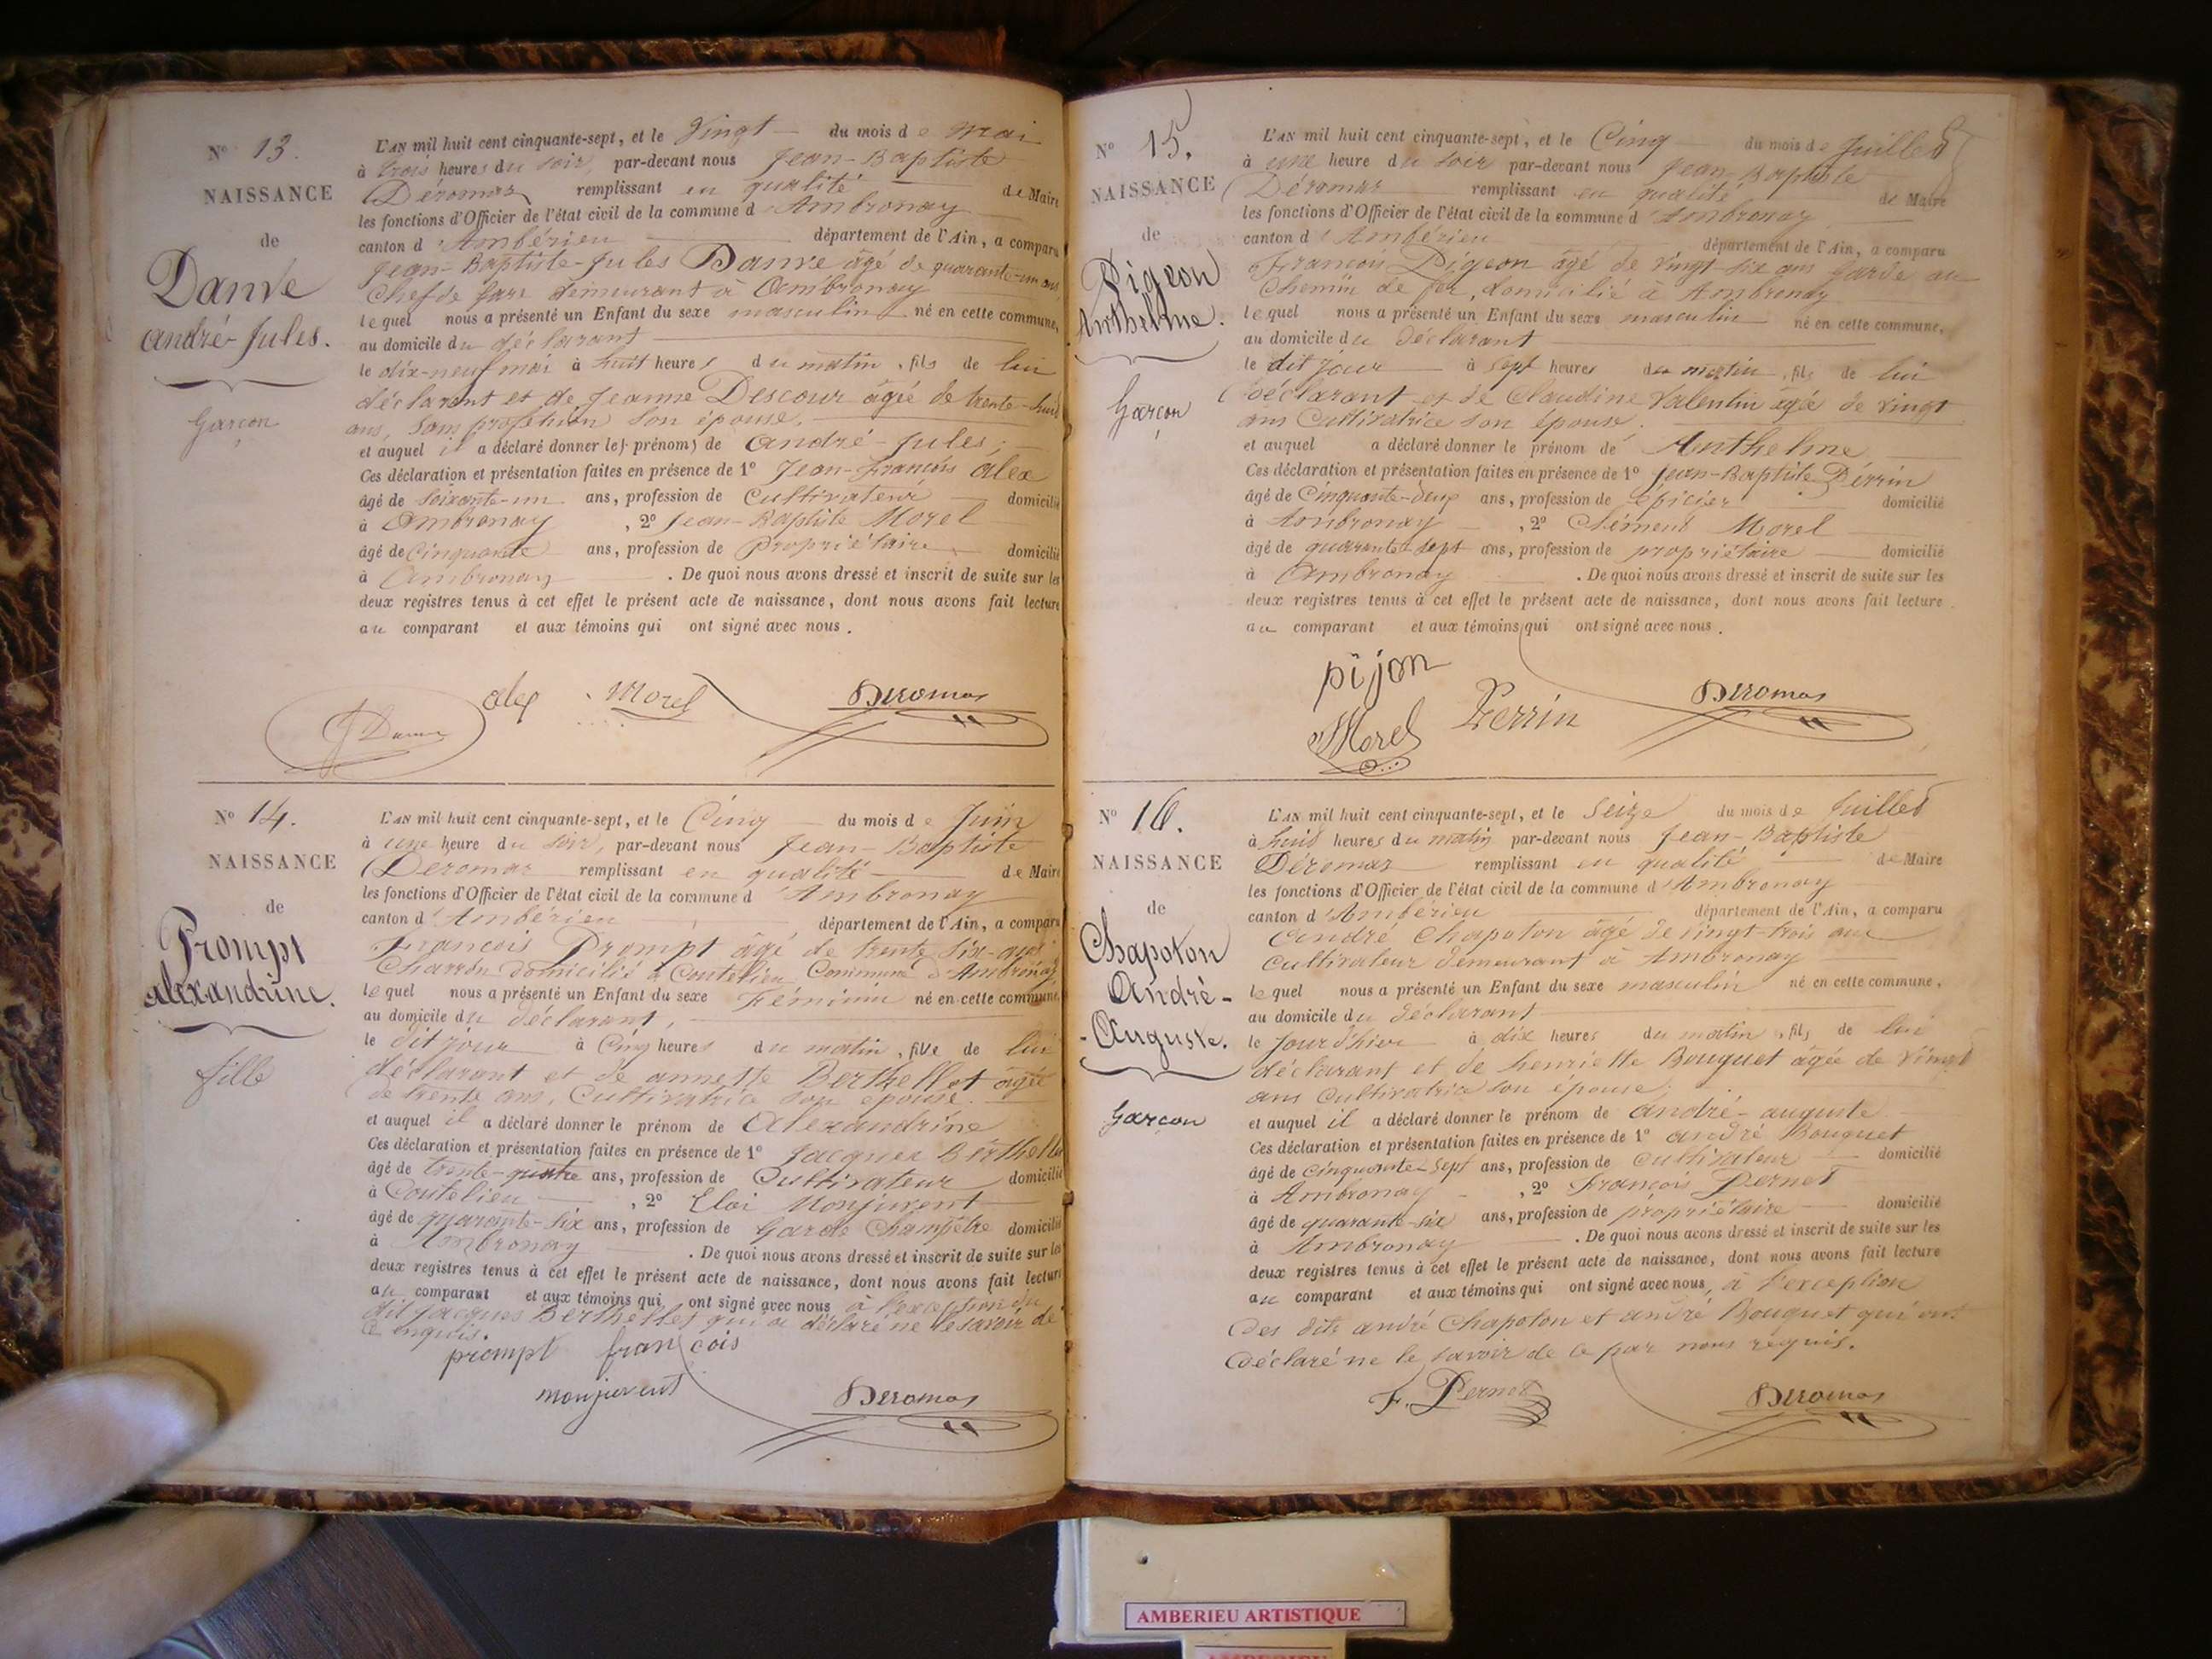 N° 13.
NAISSANCE
de
Danve
André-Jules.
Garçon
L'AN mil huit cent cinquante-sept, et le Vingt du mois de Mai
à trois heures du soir, par-devant nous Jean-Baptiste
Déromas remplissant en qualité de Maire
les fonctions d'Officier de l'état civil de la commune d'Ambronay
canton d'Ambérieu département de l'Ain, a comparu
Jean-Baptiste-Jules Danve âgé de quarante-un ans,
Chef de gare demeurant à Ambronay
lequel nous a présenté un Enfant du sexe masculin né en cette commune,
au domicile du déclarant
le dix-neuf mai à huit heures du matin, fils de lui
déclarant et de Jeanne Descour âgée de trente-huit
ans, sans profession son épouse.
et auquel il a déclaré donner les prénoms de André-Jules;
Ces déclaration et présentation faites en présence de 1° Jean-François Alex
âgé de soixante-un ans, profession de Cultivateur domicilié
à Ambronay, 2° Jean-Baptiste Morel
âgé de Cinquante ans, profession de Propriétaire domicilié
à Ambronay. De quoi nous avons dressé et inscrit de suite sur les
deux registres tenus à cet effet le présent acte de naissance, dont nous avons fait lecture
au comparant et aux témoins qui ont signé avec nous.
alex Morel Deromas
J Danve
N° 14.
NAISSANCE
de
Prompt
Alexandrine.
fille
L'AN mil huit cent cinquante-sept, et le Cinq du mois de Juin
à une heure du soir, par-devant nous Jean-Baptiste
Deromas remplissant en qualité de Maire
les fonctions d'Officier de l'état civil de la commune d'Ambronay
canton d'Ambérieu département de l'Ain, a comparu
François Prompt âgé de trente six-ans
Charron domicilié à Coutelieu Commune d'Ambronay
lequel nous a présenté un Enfant du sexe Féminin né en cette commune,
au domicile du déclarant,
le dit jour à Cinq heures du matin, fille de lui
déclarant et de annette Berthellet âgée
de trente ans, Cultivatrice son épouse.
et auquel il a déclaré donner le prénom de Alexandrine
Ces déclaration et présentation faites en présence de 1° Jacques Berthellet
âgé de trente-quatre ans, profession de Cultivateur domicilié
à Coutelieu, 2° Eloi Monjuvent
âgé de quarante-six ans, profession de Garde Champêtre domicilié
à Ambronay. De quoi nous avons dressé et inscrit de suite sur les
deux registres tenus à cet effet le présent acte de naissance, dont nous avons fait lecture
au comparant et aux témoins qui ont signé avec nous à l'exception du
dit Jacques Berthellet qui a déclaré ne le savoir de
ce requis.
prompt françois
monjuvent Deromas
N° 15.
NAISSANCE
de
Pigeon
Anthelme.
Garçon
L'AN mil huit cent cinquante-sept, et le Cinq du mois de Juillet
à une heure du soir par-devant nous Jean-Baptiste
Déromas remplissant en qualité de Maire
les fonctions d'Officier de l'état civil de la commune d'Ambronay
canton d'Ambérieu département de l'Ain, a comparu
François Pigeon âgé de vingt-six ans Garde au
Chemin de fer, domicilié à Ambronay
lequel nous a présenté un Enfant du sexe masculin né en cette commune,
au domicile du déclarant
le dit jour à sept heures du matin, fils de lui
déclarant et de Claudine Valentin âgée de vingt
ans Cultivatrice son épouse.
et auquel a déclaré donner le prénom de Anthelme
Ces déclaration et présentation faites en présence de 1° Jean-Baptiste Perrin
âgé de Cinquante-deux ans, profession de épicier domicilié
à Ambronay, 2° Clément Morel
âgé de quarante-sept ans, profession de propriétaire domicilié
à Ambronay. De quoi nous avons dressé et inscrit de suite sur les
deux registres tenus à cet effet le présent acte de naissance, dont nous avons fait lecture
au comparant et aux témoins qui ont signé avec nous.
pijon
Morel Perrin Deromas
N° 16.
NAISSANCE
de
Chapoton
André-
-Auguste.
Garçon
L'AN mil huit cent cinquante-sept, et le Seize du mois de Juillet
à huit heures du matin par-devant nous Jean-Baptiste
Déromas remplissant en qualité de Maire
les fonctions d'Officier de l'état civil de la commune d'Ambronay
canton d'Ambérieu département de l'Ain, a comparu
André Chapoton âgé de vingt-trois ans
Cultivateur demeurant à Ambronay
lequel nous a présenté un Enfant du sexe masculin né en cette commune,
au domicile du déclarant
le Jour d'hier à dix heures du matin, fils de lui
déclarant et de henriette Bouquet âgée de vingt
ans Cultivatrice son épouse;
et auquel il a déclaré donner le prénom de andré-auguste
Ces déclaration et présentation faites en présence de 1° andré Bouquet
âgé de Cinquante-sept ans, profession de Cultivateur domicilié
à Ambronay, 2° François Pernet
âgé de quarante-six ans, profession de propriétaire domicilié
à Ambronay. De quoi nous avons dressé et inscrit de suite sur les
deux registres tenus à cet effet le présent acte de naissance, dont nous avons fait lecture
au comparant et aux témoins qui ont signé avec nous, à l'exception
Des dits andré Chapoton et andré Bouquet qui ont
déclaré ne le savoir de ce par nous requis.
F. Pernet Deromas
AMBERIEU ARTISTIQUE